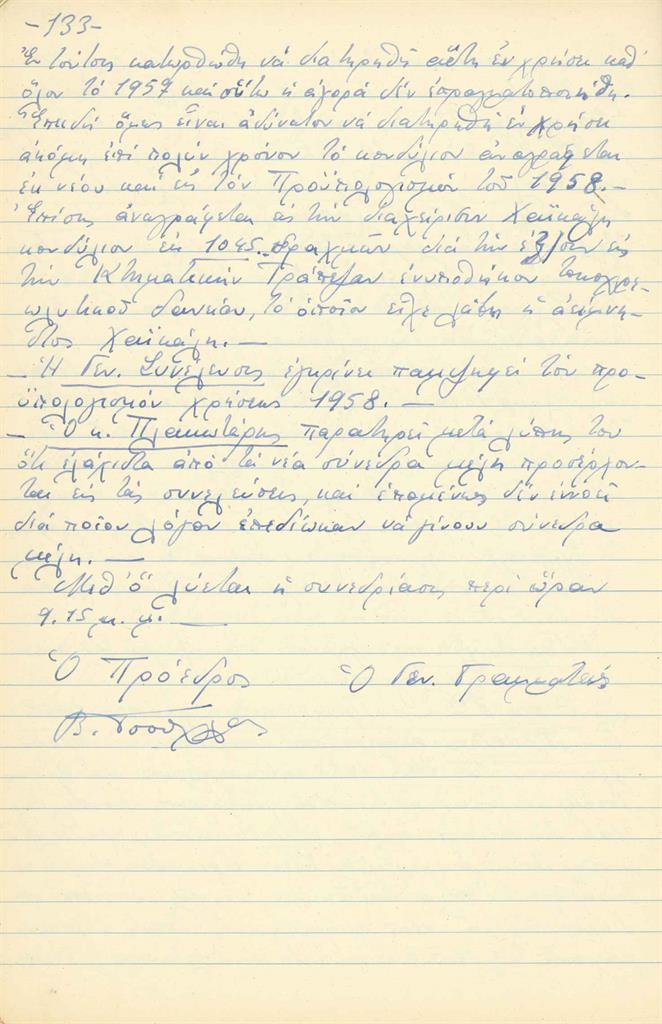 -133-
Ἐν τούτοις κατωρθώθη νά διατηρηθῆ αὕτη ἐν χρήσει καθ'
ὅλον τό 1957 καί οὕτω ἡ ἀγορά δέν ἐπραγματοποιήθη.
Ἐπειδή ὅμως εἶναι ἀδύνατον νά διατηρηθῆ ἐν χρήσει
ἀκόμη ἐπί πολύν χρόνον τό κονδύλιον ἀναγράφεται
ἐκ νέου καί εἰς τόν Προϋπολογισμόν τοῦ 1958.-
Ἐπίσης ἀναγράφεται εἰς τήν διαχείρισιν Χαϊκάλη
κονδύλιον ἐκ 1045 δραχμῶν διά τήν ἐξ εἰς
τήν Κτηματικήν Τράπεζαν ἐνυποθήκου τοκοχρε-
ωλυτικοῦ δανείου, τό ὁποῖον εἶχε λάβει ἡ ἀείμνη-
στος Χαϊκάλη.—
— Ἡ Γεν. Συνέλευσις ἐγκρίνει παμψηφεί τόν προ-
ϋπολογισμόν χρήσεως 1958.—
— Ὁ κ. Πλακωτάρης παρατηρεῖ μετά λύπης του
ὅτι ἐλάχιστα ἀπό τά νέα σύνεδρα μέλη προσέρχον-
ται εἰς τάς συνελεύσεις, καί ἑπομένως δέν ἐννοεῖ
διά ποῖον λόγον ἐπεδίωκαν νά γίνουν σύνεδρα
μέλη.—
Μεθ' ὅ λύεται ἡ συνεδρίασις περί ὥραν
9.15 μ.μ.—
Ὁ Πρόεδρος Ὁ Γεν. Γραμματεύς
Β.